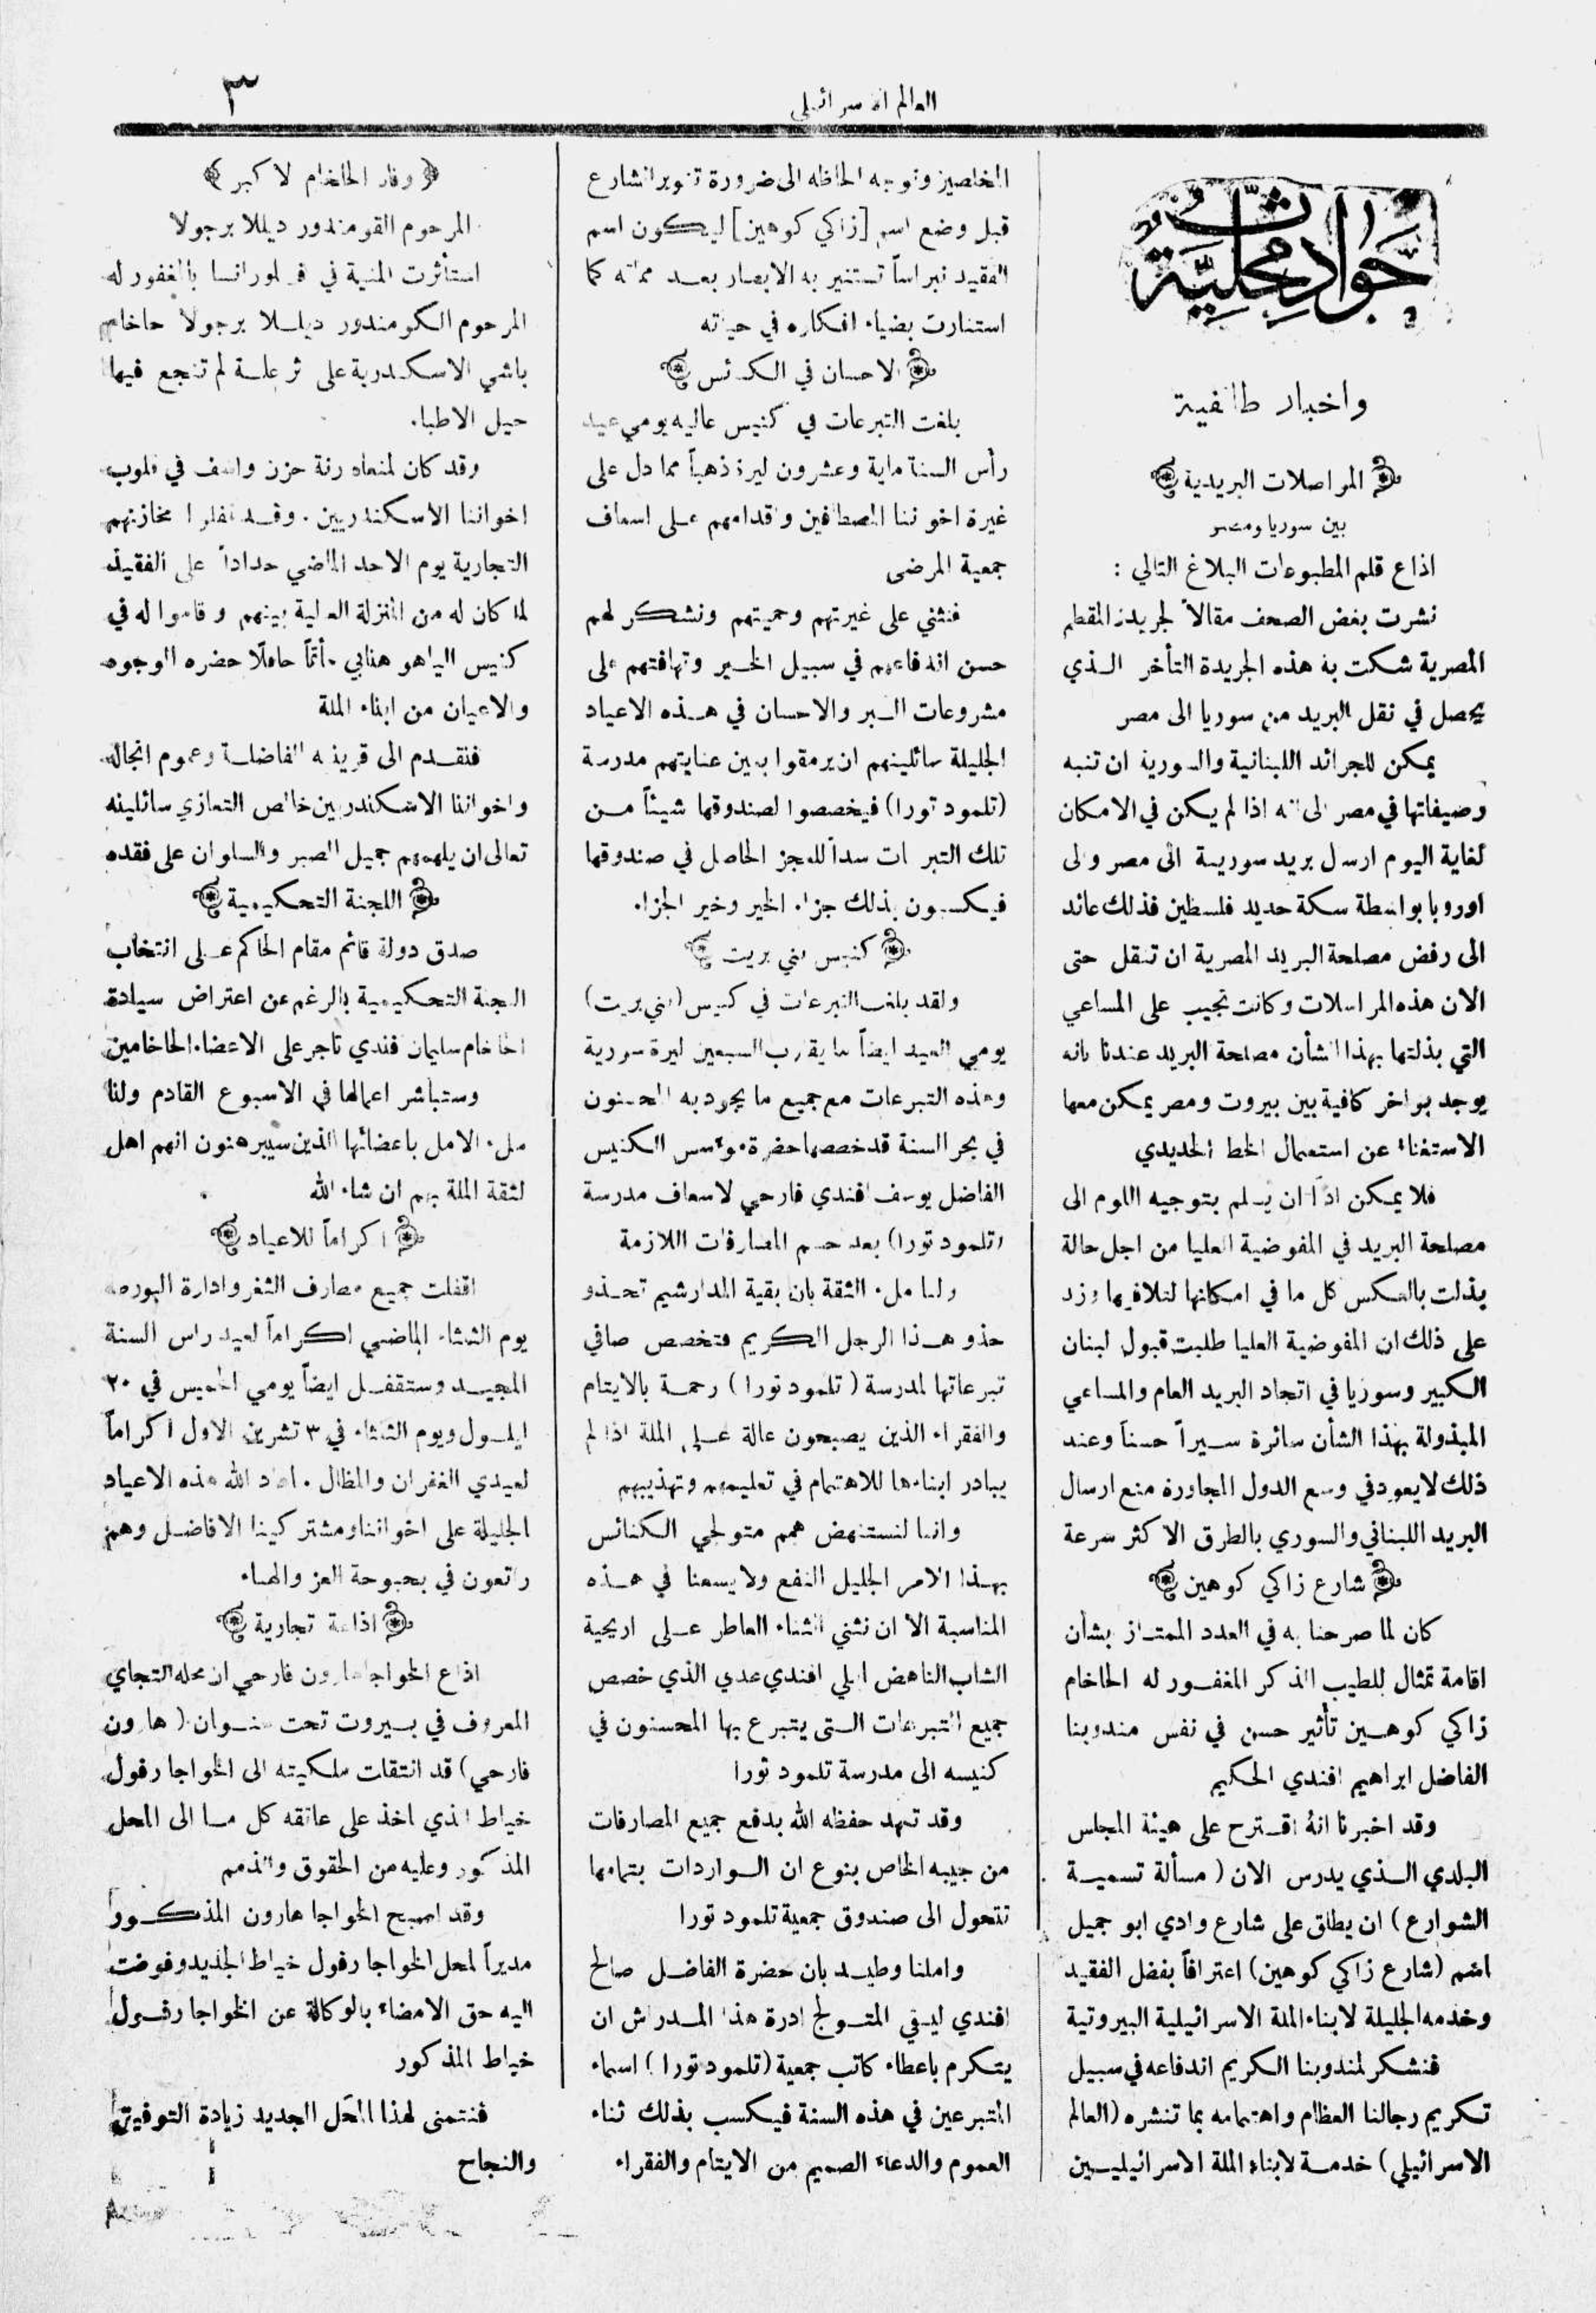 ٣
العالم الاسرائيلي
حوادث محلية
واخبار طائفية
المواصلات البريدية
بين سوريا ومصر
اذاع قلم المطبوعات البلاغ التالي :
نشرت بعض الصحف مقالاً لجريدة المقطم
المصرية شكت به هذه الجريدة التأخر الذي
يحصل في نقل البريد من سوريا الى مصر
يمكن للجرائد اللبنانية والسورية ان تنبه
وصيفاتها في مصر الى انه اذا لم يكن في الامكان
لغاية اليوم ارسال بريد سورية الى مصر والى
اوروبا بواسطة سكة حديد فلسطين فذلك عائد
الى رفض مصلحة البريد المصرية ان تنقل حتى
الان هذه المراسلات وكانت تجيب على المساعي
التي بذلتها بهذا الشأن مصلحة البريد عندنا بانه
يوجد بواخر كافية بين بيروت ومصر يمكن معها
الاستغناء عن استعمال الخط الحديدي
فلا يمكن اذاً ان يسلم بتوجيه اللوم الى
مصلحة البريد في المفوضية العليا من اجل حالة
بذلت بالعكس كل ما في امكانها لتلافيها وزد
على ذلك ان المفوضية العليا طلبت قبول لبنان
الكبير وسوريا في اتحاد البريد العام والمساعي
المبذولة بهذا الشأن سائرة سيراً حسناً وعند
ذلك لا يعود في وسع الدول المجاورة منع ارسال
البريد اللبناني والسوري بالطرق الاكثر سرعة
شارع زاكي كوهين
كان لما صرحنا به في العدد الممتاز بشأن
اقامة تمثال للطيب الذكر المغفور له الحاخام
زاكي كوهين تأثير حسن في نفس مندوبنا
الفاضل ابراهيم افندي الحكيم
وقد اخبرنا انهُ اقترح على هيئة المجلس
البلدي الذي يدرس الان ( مسألة تسمية
الشوارع ) ان يطلق على شارع وادي ابو جميل
اسم (شارع زاكي كوهين) اعترافاً بفضل الفقيد
وخدمه الجليلة لابناء الملة الاسرائيلية البيروتية
فنشكر لمندوبنا الكريم اندفاعه في سبيل
تكريم رجالنا العظام واهتمامه بما تنشره (العالم
الاسرائيلي) خدمة لابناء الملة الاسرائيليين
المخلصين ونوجه الحاظه الى ضرورة تنوير الشارع
قبل وضع اسم [زاكي كوهين] ليكون اسم
الفقيد نبراساً تستنير به الابصار بعد مماته كما
استنارت بضياء افكاره في حياته
الاحسان في الكنائس
بلغت التبرعات في كنيس عاليه يومي عيد
رأس السنة ماية وعشرون ليرة ذهباً مما دل على
غيرة اخواننا المصطافين واقدامهم على اسعاف
جمعية المرضى
فنثني على غيرتهم وحميتهم ونشكر لهم
حسن اندفاعهم في سبيل الخير وتهافتهم على
مشروعات البر والاحسان في هذه الاعياد
الجليلة سائلينهم ان يرمقوا بعين عنايتهم مدرسة
(تلمود تورا) فيخصصوا لصندوقها شيئاً من
تلك التبرعات سداً للعجز الحاصل في صندوقها
فيكسبون بذلك جزاء الخير وخير الجزاء
كنيس بني بريت
ولقد بلغت التبرعات في كنيس (بني بريت)
يومي العيد ايضاً ما يقارب السبعين ليرة سورية
وهذه التبرعات مع جميع ما يجود به المحسنون
في بحر السنة قد خصصها حضرة مؤسس الكنيس
الفاضل يوسف افندي فارحي لاسعاف مدرسة
(تلمود تورا) بعد حسم المصارفات اللازمة
ولنا ملء الثقة بان بقية المدارشيم تحذو
حذو هذا الرجل الكريم فتخصص صافي
تبرعاتها لمدرسة ( تلمود تورا ) رحمة بالايتام
والفقراء الذين يصبحون عالة على الملة اذا لم
يبادر ابناءها للاهتمام في تعليمهم وتهذيبهم
وانما لنستنهض همم متولجي الكنائس
بهذا الامر الجليل النفع ولا يسعنا في هذه
المناسبة الا ان نثني الثناء العاطر على اريحية
الشاب الناهض ايلي افندي عدي الذي خصص
جميع التبرعات التي يتبرع بها المحسنون في
كنيسه الى مدرسة تلمود تورا
وقد تعهد حفظه الله بدفع جميع المصارفات
من جيبه الخاص بنوع ان الواردات بتمامها
تتحول الى صندوق جمعية تلمود تورا
واملنا وطيد بان حضرة الفاضل صالح
افندي ليفي المتولج ادرة هذا المدراش ان
يتكرم باعطاء كاتب جمعية (تلمود تورا) اسماء
المتبرعين في هذه السنة فيكسب بذلك ثناء
العموم والدعاء الصميم من الايتام والفقراء
وفاة الحاخام الاكبر
المرحوم القومندور ديللا برجولا
استأثرت المنية في فلورانسا بالمغفور له
المرحوم الكومندور ديللا برجولا حاخام
باشي الاسكندرية على اثر علة لم تنجع فيها
حيل الاطباء
وقد كان لمنعاه رنة حزن واسف في قلوب
اخواننا الاسكندريين . وقد اقفلوا مخازنهم
التجارية يوم الاحد الماضي حداداً على الفقيد
لما كان له من المنزلة العالية بينهم وقاموا له في
كنيس الياهو هنابي مأتماً حافلاً حضره الوجوه
والاعيان من ابناء الملة
فنتقدم الى قرينته الفاضلة وعموم انجاله
واخواننا الاسكندريين خالص التعازي سائلينه
تعالى ان يلهمهم جميل الصبر والسلوان على فقده
اللجنة التحكيمية
صدق دولة قائم مقام الحاكم على انتخاب
اللجنة التحكيمية بالرغم عن اعتراض سيادة
الحاخام سليمان افندي تاجر على الاعضاء الحاخامين
وستباشر اعمالها في الاسبوع القادم ولنا
ملء الامل باعضائها الذين سيبرهنون انهم اهل
لثقة الملة بهم ان شاء الله
اكراماً للاعياد
اقفلت جميع مصارف الثغر وادارة البورصة
يوم الثلثاء الماضي اكراماً لعيد راس السنة
المجيد وستقفل ايضاً يومي الخميس في ٢٠
ايلول ويوم الثلثاء في ٣ تشرين الاول اكراماً
لعيدي الغفران والمظال . اعاد الله هذه الاعياد
الجليلة على اخواننا ومشتركينا الافاضل وهم
راتعون في بحبوحة العز والهناء
اذاعة تجارية
اذاع الخواجا هارون فارحي ان محله التجاي
المعروف في بيروت تحت عنوان ( هارون
فارحي) قد انتقلت ملكيته الى الخواجا رفول
خياط الذي اخذ على عاتقه كل ما الى المحل
المذكور وعليه من الحقوق والذمم
وقد اصبح الخواجا هارون المذكور
مديراً لمحل الخواجا رفول خياط الجديد وفوضت
اليه حق الامضاء بالوكالة عن الخواجا رفول
خياط المذكور
فنتمنى لهذا المحل الجديد زيادة التوفيق
والنجاح